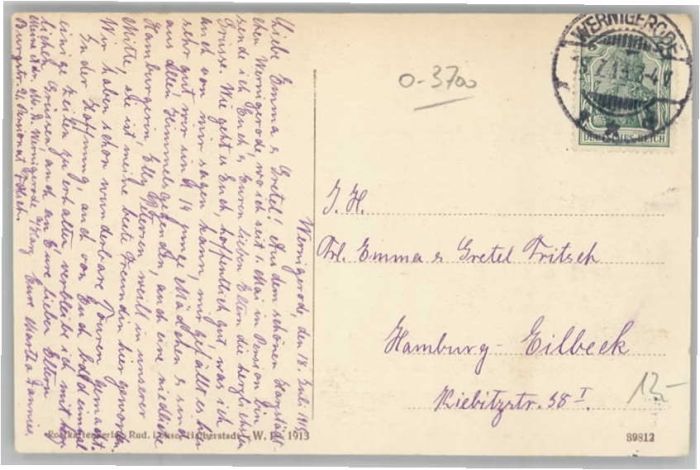 Wernigerode, den 18. Juli 1913
Liebe Emma u. Gretel! Aus dem schönen Harzstädt-
chen Wernigerode, wo ich seit 1. Mai in Pension bin
sende ich Euch u. Euren lieben Eltern die herzlichsten
Grüsse. Wie geht es Euch, hoffentlich gut, was ich
auch von mir sagen kann, mir gefällt es hier
sehr gut, wir sind 14 junge Mädchen u. sind
aus allen Himmelsgegenden, auch eine niedliche
Hamburgerin, Elly Petersen, weilt in unserer
Mitte, sie ist meine beste Freundin hier geworden.
Wir haben schon wunderbare Touren gemacht.
In der Hoffnung, auch von Euch bald einmal
einige Zeilen zu erhalten, verbleibe ich mit herz-
lichen Grüssen auch an Eure lieben Eltern
Eure Martha
Meine Adr. Wernigerode a/Harz
Burgstr. Pensionat
WERNIGERODE
DEUTSCHES REICH
0-3700
I. H.
Frl. Emma u. Gretel Fritsch
Hamburg-Eilbeck
Kiebitzstr. 38 I.
12.-
Postkartenverlag Rud. Halberstadt. W. R. 1913
89812